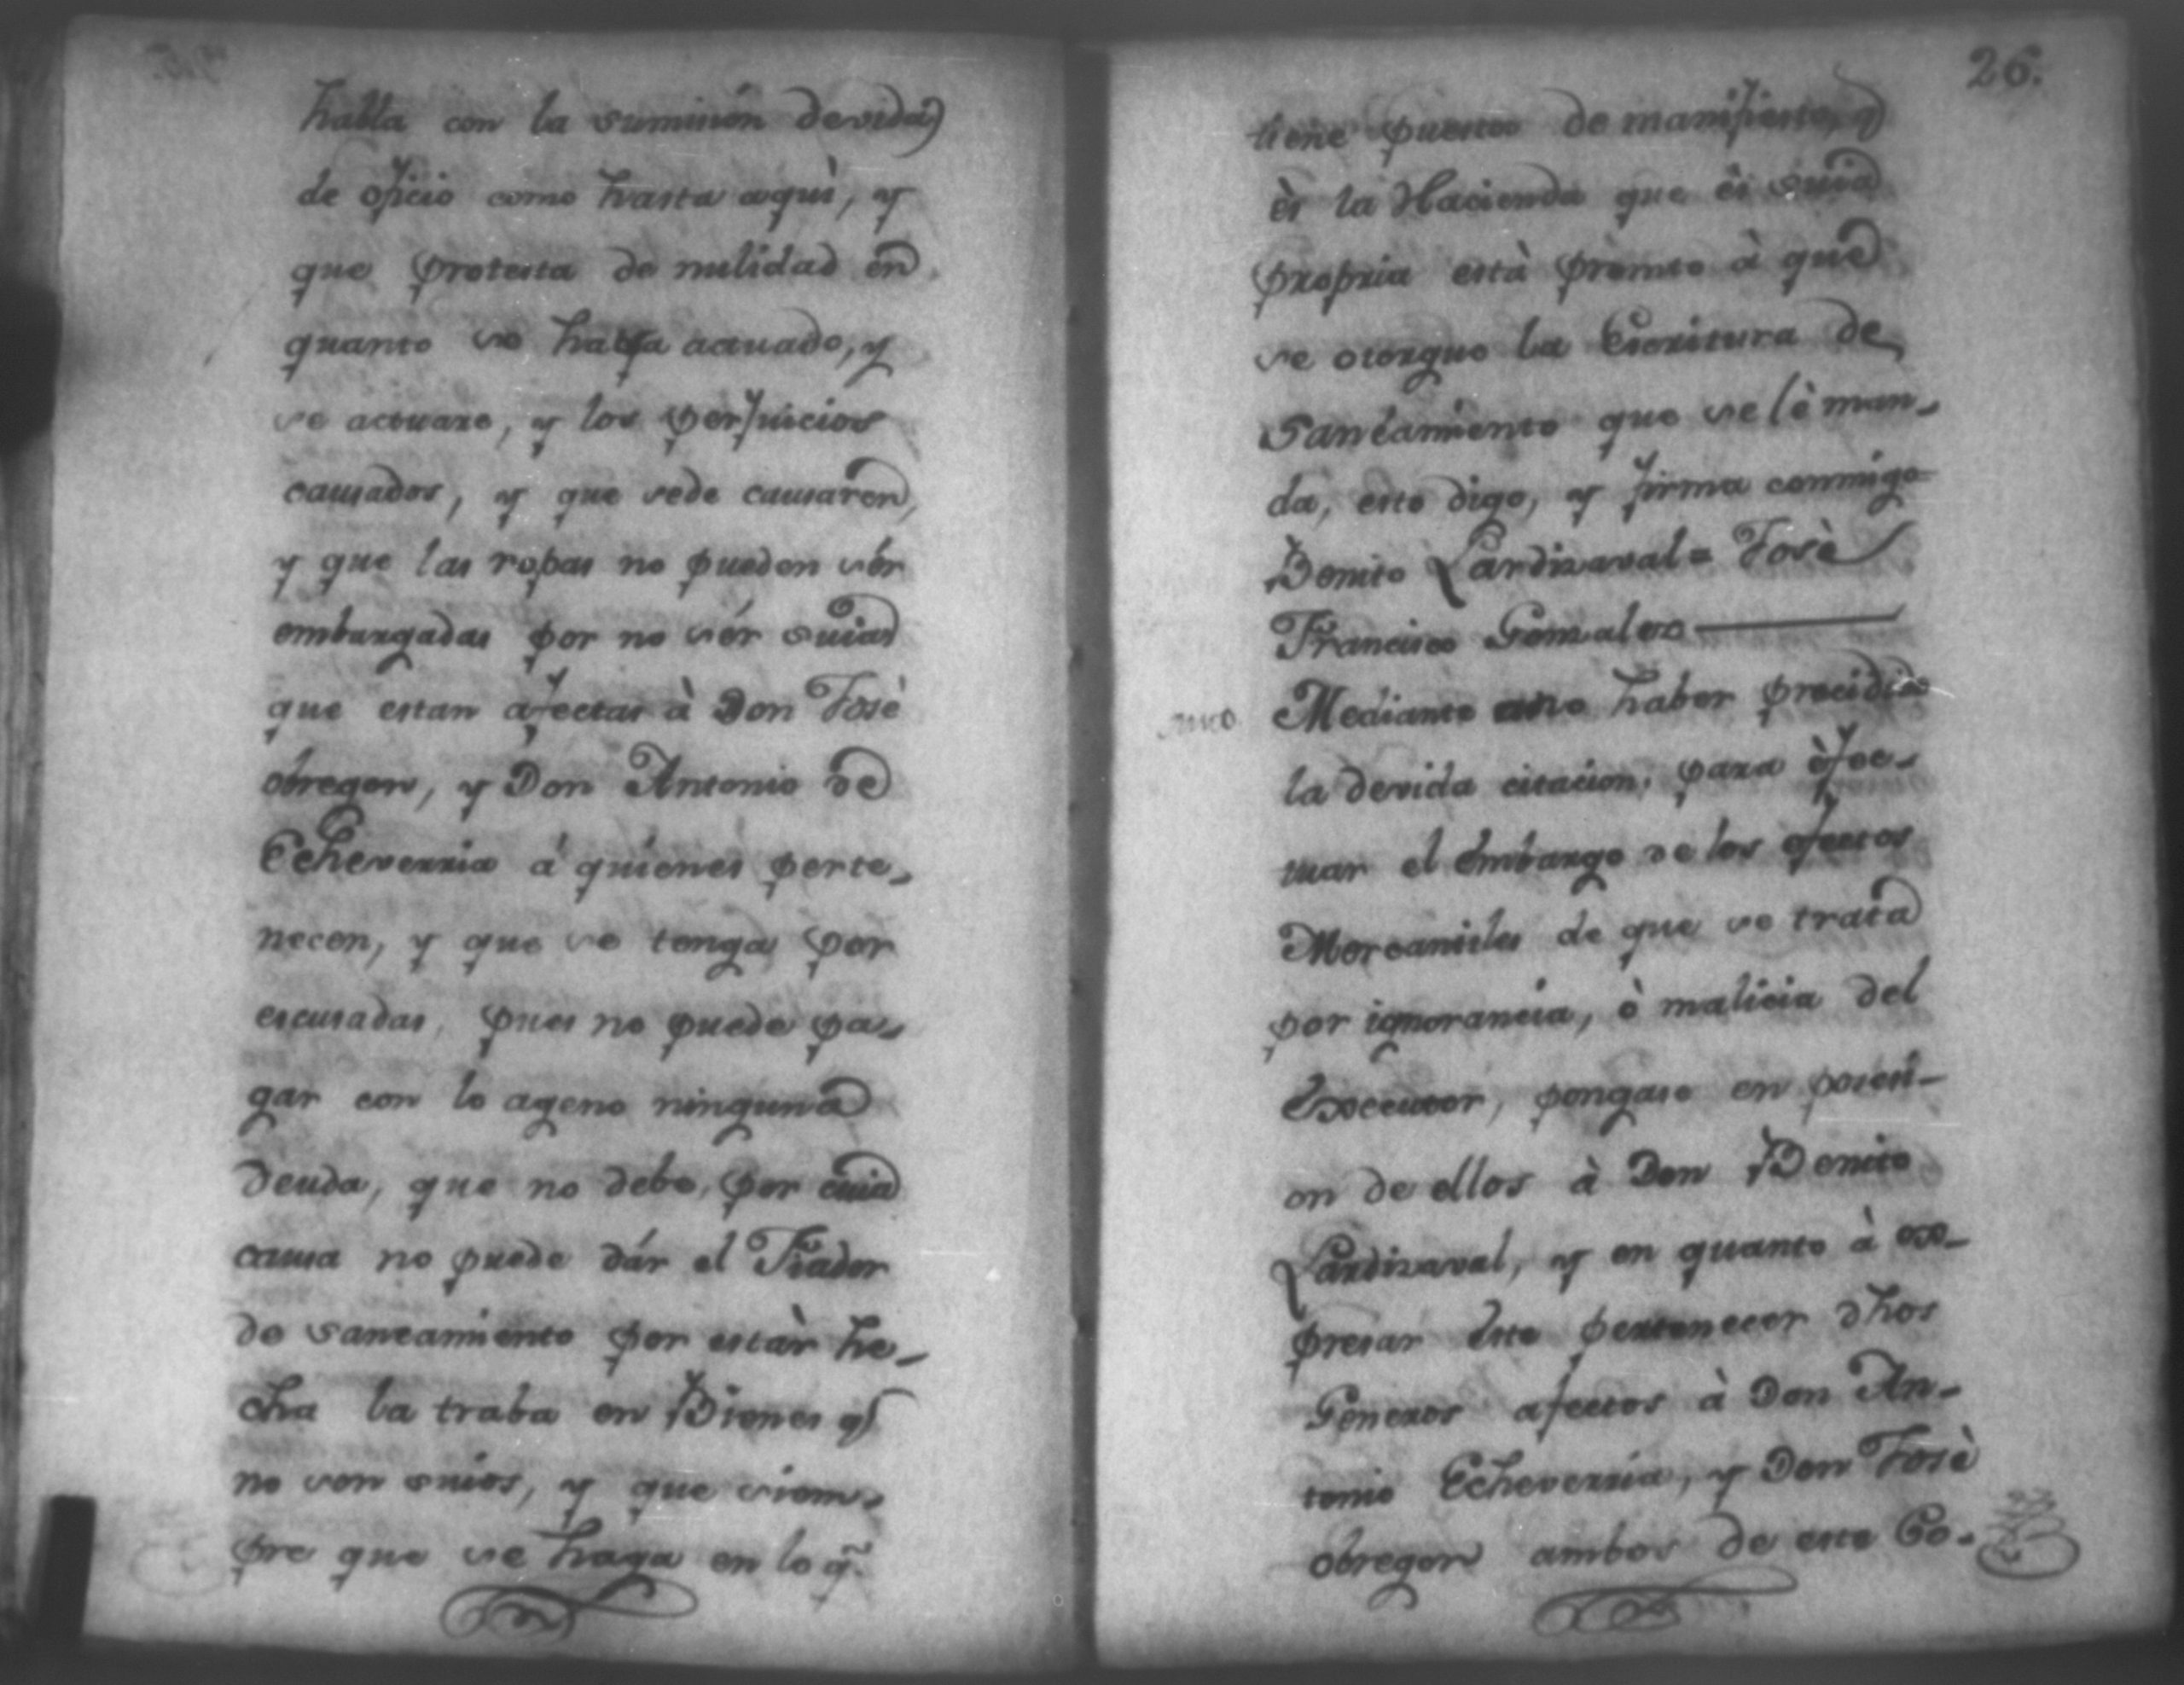 habla con la sumision devida
de oficio como hasta aquì, y
que protesta de nulidad en
quanto se haya actuado, y
se actuare, y los perjuicios
causados, y que sede causaren,
y que las ropas no pueden sér
embargadas por no sér suias
que estan afectas à Don Josè
obregon, y Don Antonio de
Echeverria á quienes perte-
necen, y que se tenga por
escusadas, pues no puede pa-
gar con lo ageno ninguna
deuda, que no debe, por cuia
causa no puede dár el Fiador
de saneamiento por estàr he-
cha la traba en Bienes q
no son suios, y que siem-
pre que se haga en lo q̃
26.
tiene puesto de manifiesto, q
ès la Hacienda que ès suia
propria està prompto à que
se otorgue la Escritura de
Saneamiento que se lè man-
da, esto digo, y firma conmigo
Benito Lardizaval = Josè
Francisco Gonzalez
Auto Mediante no haber precidido
la devida citacion, para èfec-
tuar el èmbargo de los efectos
Mercantiles de que se trata
por ignorancia, ò malicia del
Executor, pongase en posesi-
on de ellos à Don Benito
Lardizaval, y en quanto à ex-
presar èste pertenecer dhos
Generos afectos à Don An-
tonio Echeverria, y Don Josè
obregon ambos de este Co-